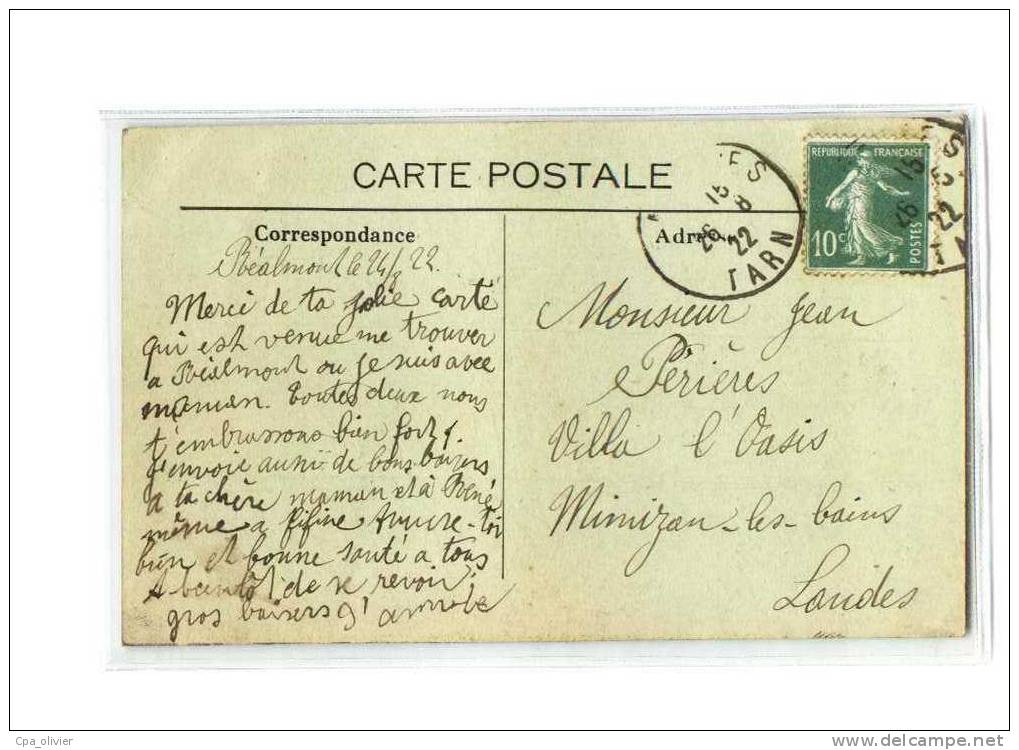 CARTE POSTALE
REPUBLIQUE FRANÇAISE
10c
POSTES
15
26 8
22
TARN
Correspondance
Réalmont le 24/8 22.
Merci de ta jolie carte
qui est venue me trouver
a Réalmont ou je suis avec
maman. Toutes deux nous
t'embrassons bien fort.
J'envoie aussi de bons baisers
a ta chère maman et à René
même a fifine Amuse-toi
bien et bonne santé a tous
A bientôt de se revoir
gros baisers
Adresse
Monsieur Jean
Périères
Villa l'Oasis
Mimizan-les-bains
Landes
Cpa_olivier
www.delcampe.net